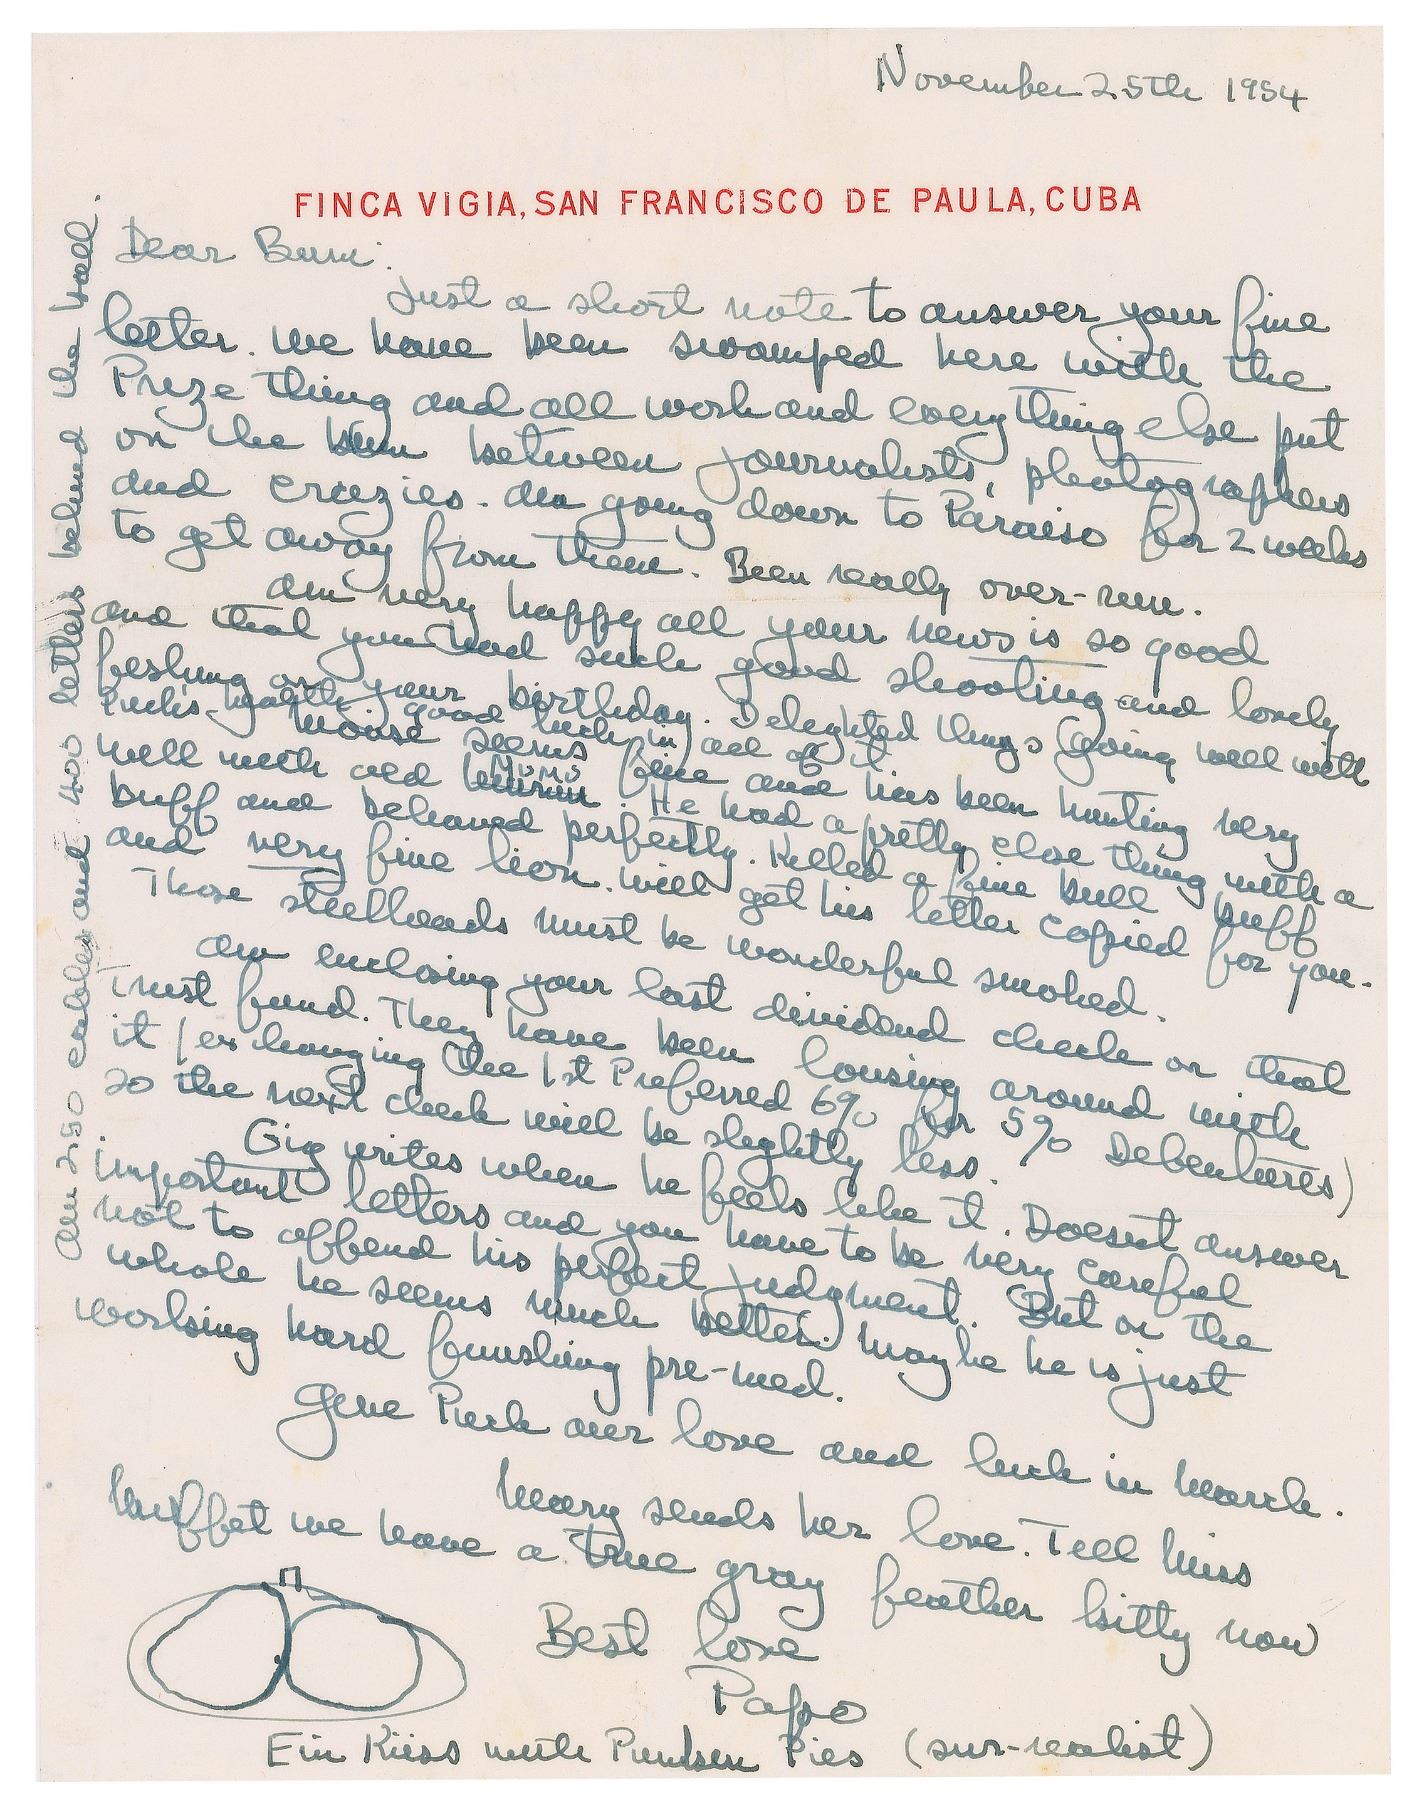 November 25th 1954
FINCA VIGIA, SAN FRANCISCO DE PAULA, CUBA
Dear Bum:
Just a short note to answer your fine
letter. We have been swamped here with the
Prize thing and all work and everything else put
on the bum between journalists, photographers
and crazies. Am going down to Paraiso for 2 weeks
to get away from them. Been really over-run.
Am very happy all your news is so good
and that you had such good shooting and lovely
fishing on your birthday. Delighted things going well with
Puck's health, good luck in all of it
Mouse seems fine and has been hunting very
well with old Mumu. He had a pretty close thing with a
buff and behaved perfectly. Killed a fine bull buff
and very fine lion. Will get his letter copied for you.
Those steelheads must be wonderful smoked.
Am enclosing your last dividend check on that
Trust fund. They have been lousing around with
it (exchanging the 1st Preferred 6% for 5% Debentures)
so the next check will be slightly less.
Gig writes when he feels like it. Doesnt answer
important letters and you have to be very careful
not to offend his perfect judgment. But on the
whole he seems much better. Maybe he is just
working hard finishing pre-med.
Give Puck our love and luck in March.
Mary sends her love. Tell Miss
Muffet we have a true gray feather kitty now
Best love
Papa
Ein Küss mith Pies (sur-realist)
Am 250 cables and 400 letters behind the ball.